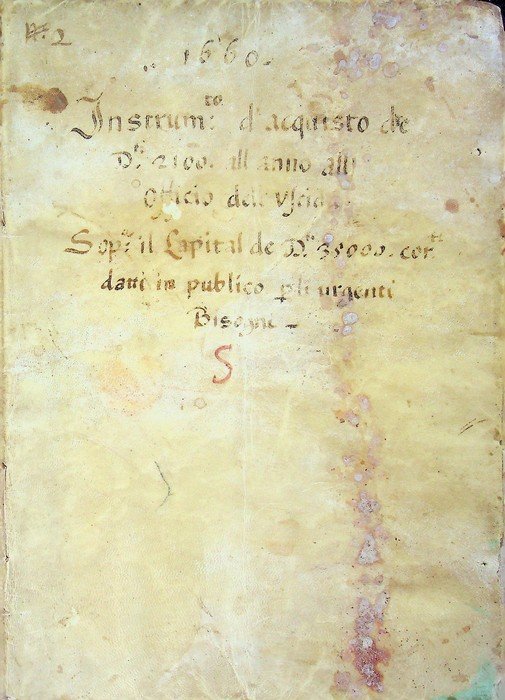 N.° 2
1660.
Instrum.to d'acquisto de
D.ti 2100. all anno all
Officio dell Vscida
Sop.a il Capital de D.ti 35000. cor.ti
datti in publico p li urgenti
Bisogni
S